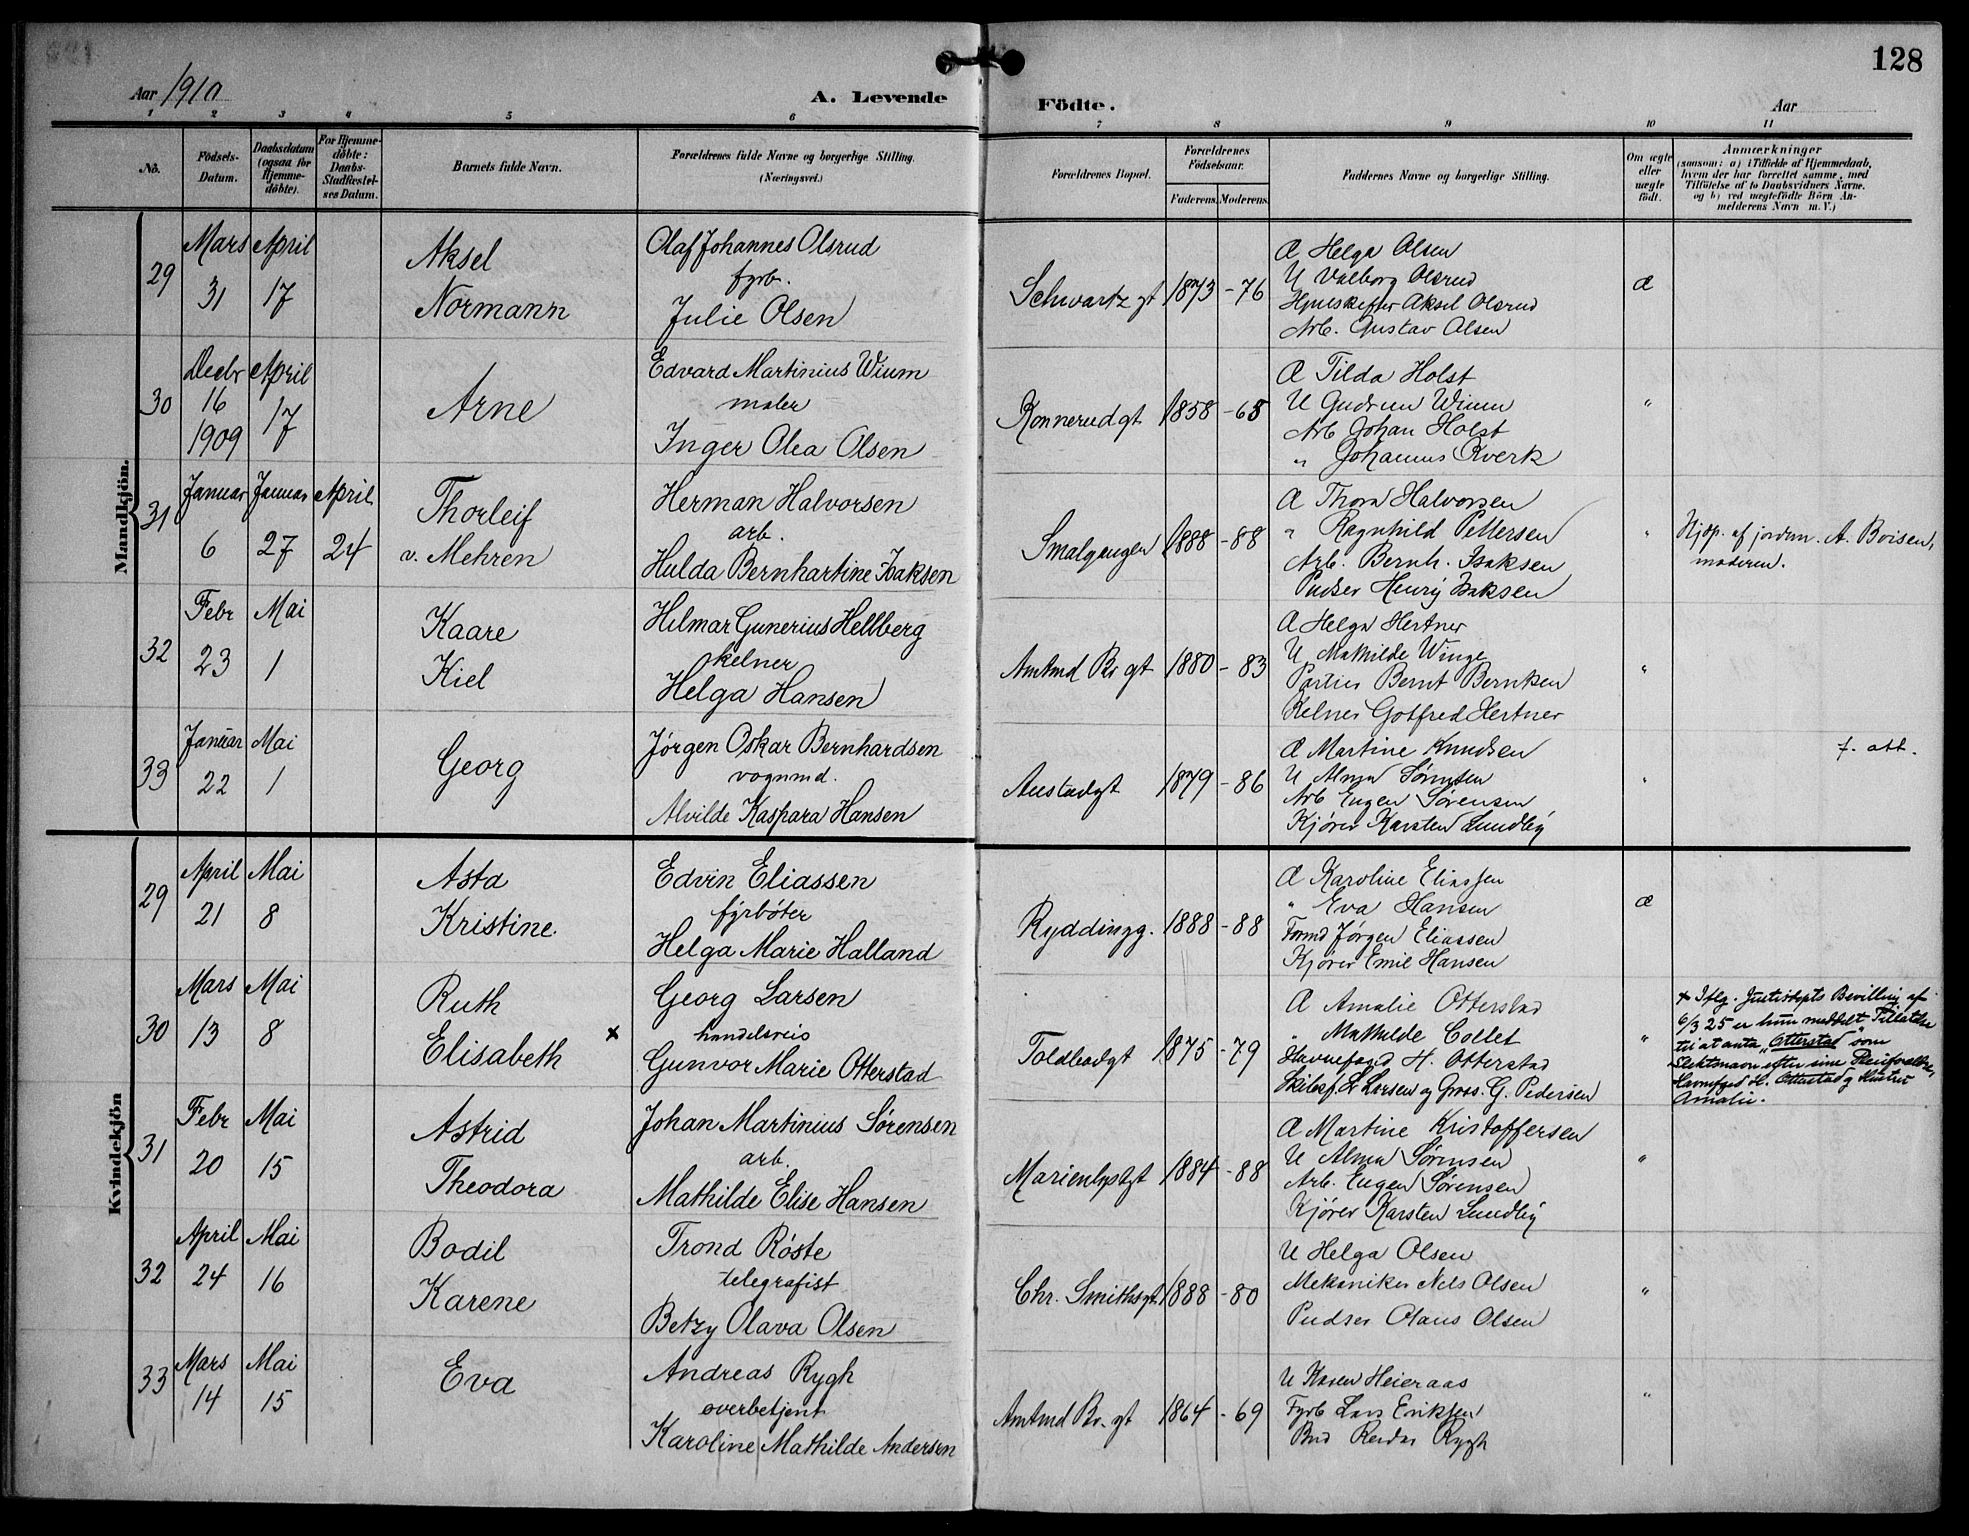 128
Aar 1910
A. Levende
Födte.
Aar
1 2 3 4 5 6 7 8 9 10 11
No.
Födsels-
Datum.
Daabsdatum
(ogsaa for
Hjemme-
döbte).
For Hjemme-
döbte:
Daabs-
Stadfæstel-
ses Datum.
Barnets fulde Navn.
Forældrenes fulde Navne og borgerlige Stilling.
(Næringsvei.)
Forældrenes Bopæl.
Forældrenes
Födselsaar.
Faderens. Moderens.
Faddernes Navne og borgerlige Stilling.
Om ægte
eller
uægte
födt.
Anmærkninger
(saasom: a) i Tilfælde af Hjemmedaab,
hvem der har forrettet samme, med
Tilföielse af to Daabsvidners Navne.
og b) ved uægtefödte Börn An-
melderens Navn m. V.)
Mandkjön.
29
Mars
31
April
17
Aksel
Normann
Olaf Johannes Olsrud
fyrb.
Julie Olsen
Schwartz gt
1873 - 76
Æ Helga Olsen
U Valborg Olsrud
Aksel Olsrud
Arb. Gustav Olsen
æ
30
Decbr
16
1909
April
17
Arne
Edvard Martinius Wium
maler
Inger Olea Olsen
Konnerudgt
1858 - 65
Æ Tilda Holst
U Gudrun Wium
Arb Johan Holst
" Johannes Kverk
"
31
Januar
6
Januar
27
April
24
Thorleif
v. Mehren
Herman Halvorsen
arb.
Hulda Bernhartine Isaksen
Smalgangen
1888 - 88
Æ Thora Halvorsen
" Ragnhild Pettersen
Arb. Bernh. Isaksen
Pudser Henrij Isaksen
"
Hjdp. af jordm. A. Boisen,
moderen.
32
Febr
23
Mai
1
Kaare
Kiel
Hilmar Gunerius Hellberg
kelner
Helga Hansen
Amtmd Br gt
1880 - 83
Æ Helga Hertner
U Mathilde Winge
Portier Bernt Berntsen
Kelner Gotfred Hertner
"
33
Januar
22
Mai
1
Georg
Jørgen Oskar Bernhardsen
vognmd.
Alvilde Kaspara Hansen
Austadgt
1879 - 86
Æ Martine Knudsen
U Alma Sørensen
Arb Eugen Sørensen
Kjører Karsten Lundby
"
f. att.
Kvindekjön
29
April
21
Mai
8
Asta
Kristine
Edvin Eliassen
fyrbøter
Helga Marie Halland
Ryddingg.
1888 - 88
Æ Karoline Eliassen
" Eva Hansen
Formd Jørgen Eliassen
Kjører Emil Hansen
æ
30
Mars
13
Mai
8
Ruth
Elisabeth x
Georg Larsen
handelsreis
Gunvor Marie Otterstad
Toldbodgt
1875 - 79
Æ Amalie Otterstad
" Mathilde Collet
Havnefoged H. Otterstad
Skibsf. L Larsen og Gros. G. Pedersen
"
x Iflg. Justisdepts Bevilling af
6/3 25 er hun meddelt Tillatelse
til at anta "Otterstad" som
Slektsnavn efter sine Pleieforældre,
Havnefoged H. Otterstad og Hustru
Amalie.
31
Febr
20
Mai
15
Astrid
Theodora
Johan Martinius Sørensen
arb.
Mathilde Elise Hansen
Marienlystgt
1884 - 88
Æ Martine Kristoffersen
U Alma Sørensen
Arb. Eugen Sørensen
Kjører Karsten Lundby
"
32
April
24
Mai
16
Bodil
Karene
Trond Røste
telegrafist
Betzy Olava Olsen
Chr. Smithsgt
1888 - 80
U Helga Olsen
Mekaniker Nels Olsen
Pudser Olaus Olsen
"
33
Mars
14
Mai
15
Eva
Andreas Rygh
overbetjent
Karoline Mathilde Andersen
Amtmd Br. gt
1864 - 69
U Karen Heieraas
Fyrb Lars Eriksen
Bud Reidar Rygh
"